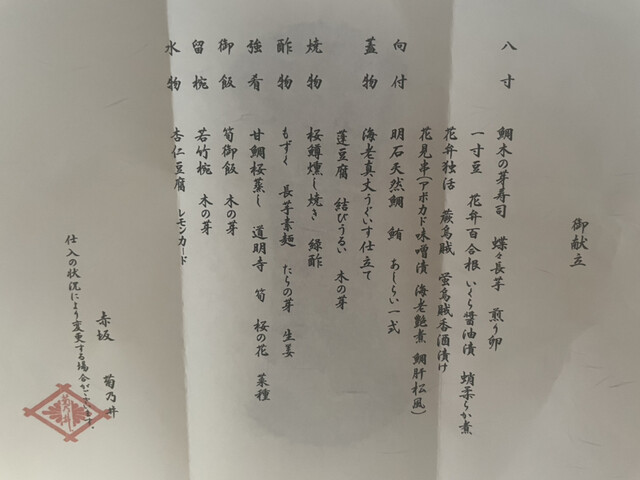 御献立
八寸　鯛木の芽寿司　蝶々長芋　煎り卵
一寸豆　花弁百合根　いくら醤油漬　蛸柔らか煮
花弁独活　蕨烏賊　蛍烏賊香酒漬け
花見串(アボカド味噌漬　海老艶煮　鯛肝松風)
向付　明石天然鯛　鮪　あしらい一式
蓋物　海老真丈うぐいす仕立て
蓬豆腐　結びうるい　木の芽
焼物　桜鱒燻し焼き　緑酢
酢物　もずく　長芋素麺　たらの芽　生姜
強肴　甘鯛桜蒸し　道明寺　筍　桜の花　菜種
御飯　筍御飯　木の芽
留椀　若竹椀　木の芽
水物　杏仁豆腐　レモンカード
赤坂　菊乃井
仕入の状況により変更する場合がございます。